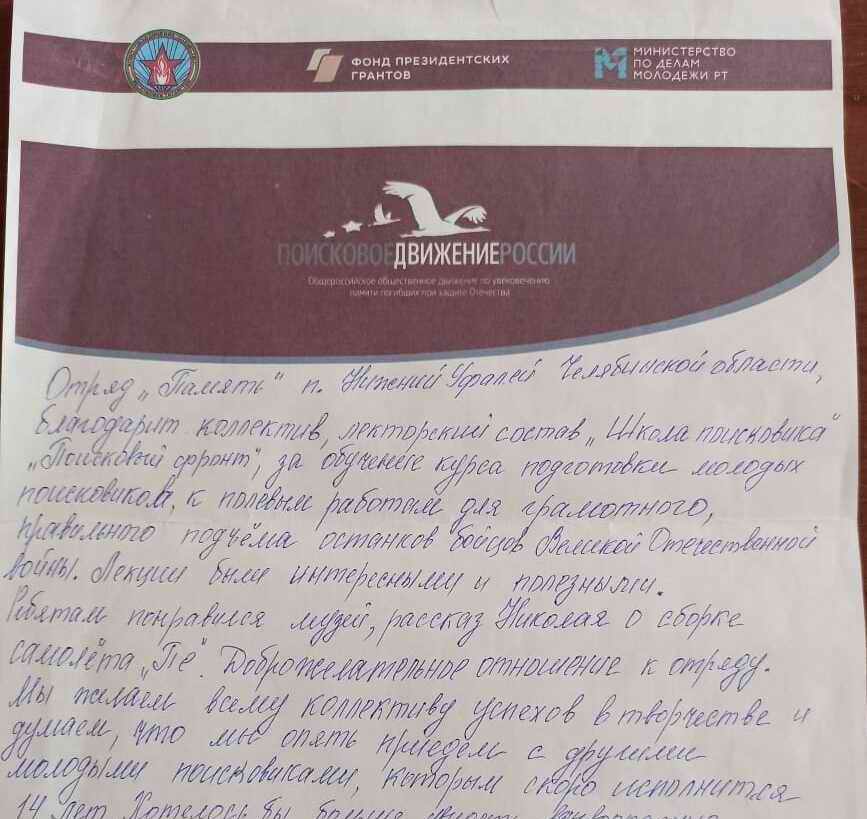 ФОНД ПРЕЗИДЕНТСКИХ
ГРАНТОВ
МИНИСТЕРСТВО
ПО ДЕЛАМ
МОЛОДЕЖИ РТ
ПОИСКОВОЕДВИЖЕНИЕРОССИИ
Общероссийское общественное движение по увековечению
памяти погибших при защите Отечества
Отряд „Память" п. Нижний Уфалей Челябинской области,
благодарит коллектив, лекторский состав „Школа поисковика"
„Поисковый фронт", за обучение курса подготовки молодых
поисковиков, к полевым работам для грамотного,
правильного подъёма останков бойцов Великой Отечественной
войны. Лекции были интересными и полезными.
Ребятам понравился музей, рассказ Николая о сборке
самолёта „Пе". Доброжелательное отношение к отряду.
Мы желаем всему коллективу успехов в творчестве и
думаем, что мы опять приедем с другими
молодыми поисковиками, которым скоро исполнится
14 лет. Хотелось бы больше